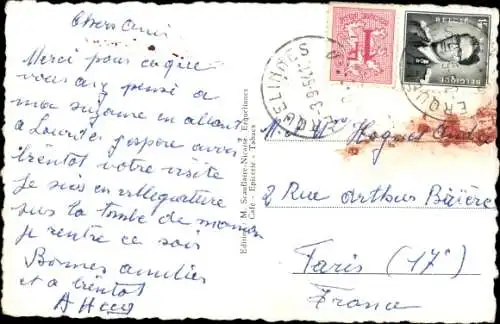 Chers Amis
Merci pour ce que
vous avez pensé a
moi Suzanne en allant
a Lourdes j'espère avoir
bientot votre visite
Je suis en villegiature
sur la tombe de maman
je rentre ce soir
Bonnes amitiés
et a bientot
Editeur: M. Scauflaire-Nicaise, Erquelinnes
Café - Epicerie - Tabacs
ERQUELINNES
BELGIE
BELGIQUE
M. et M. Hognet André
2 Rue Arthus Bâïère
Paris (17e)
France